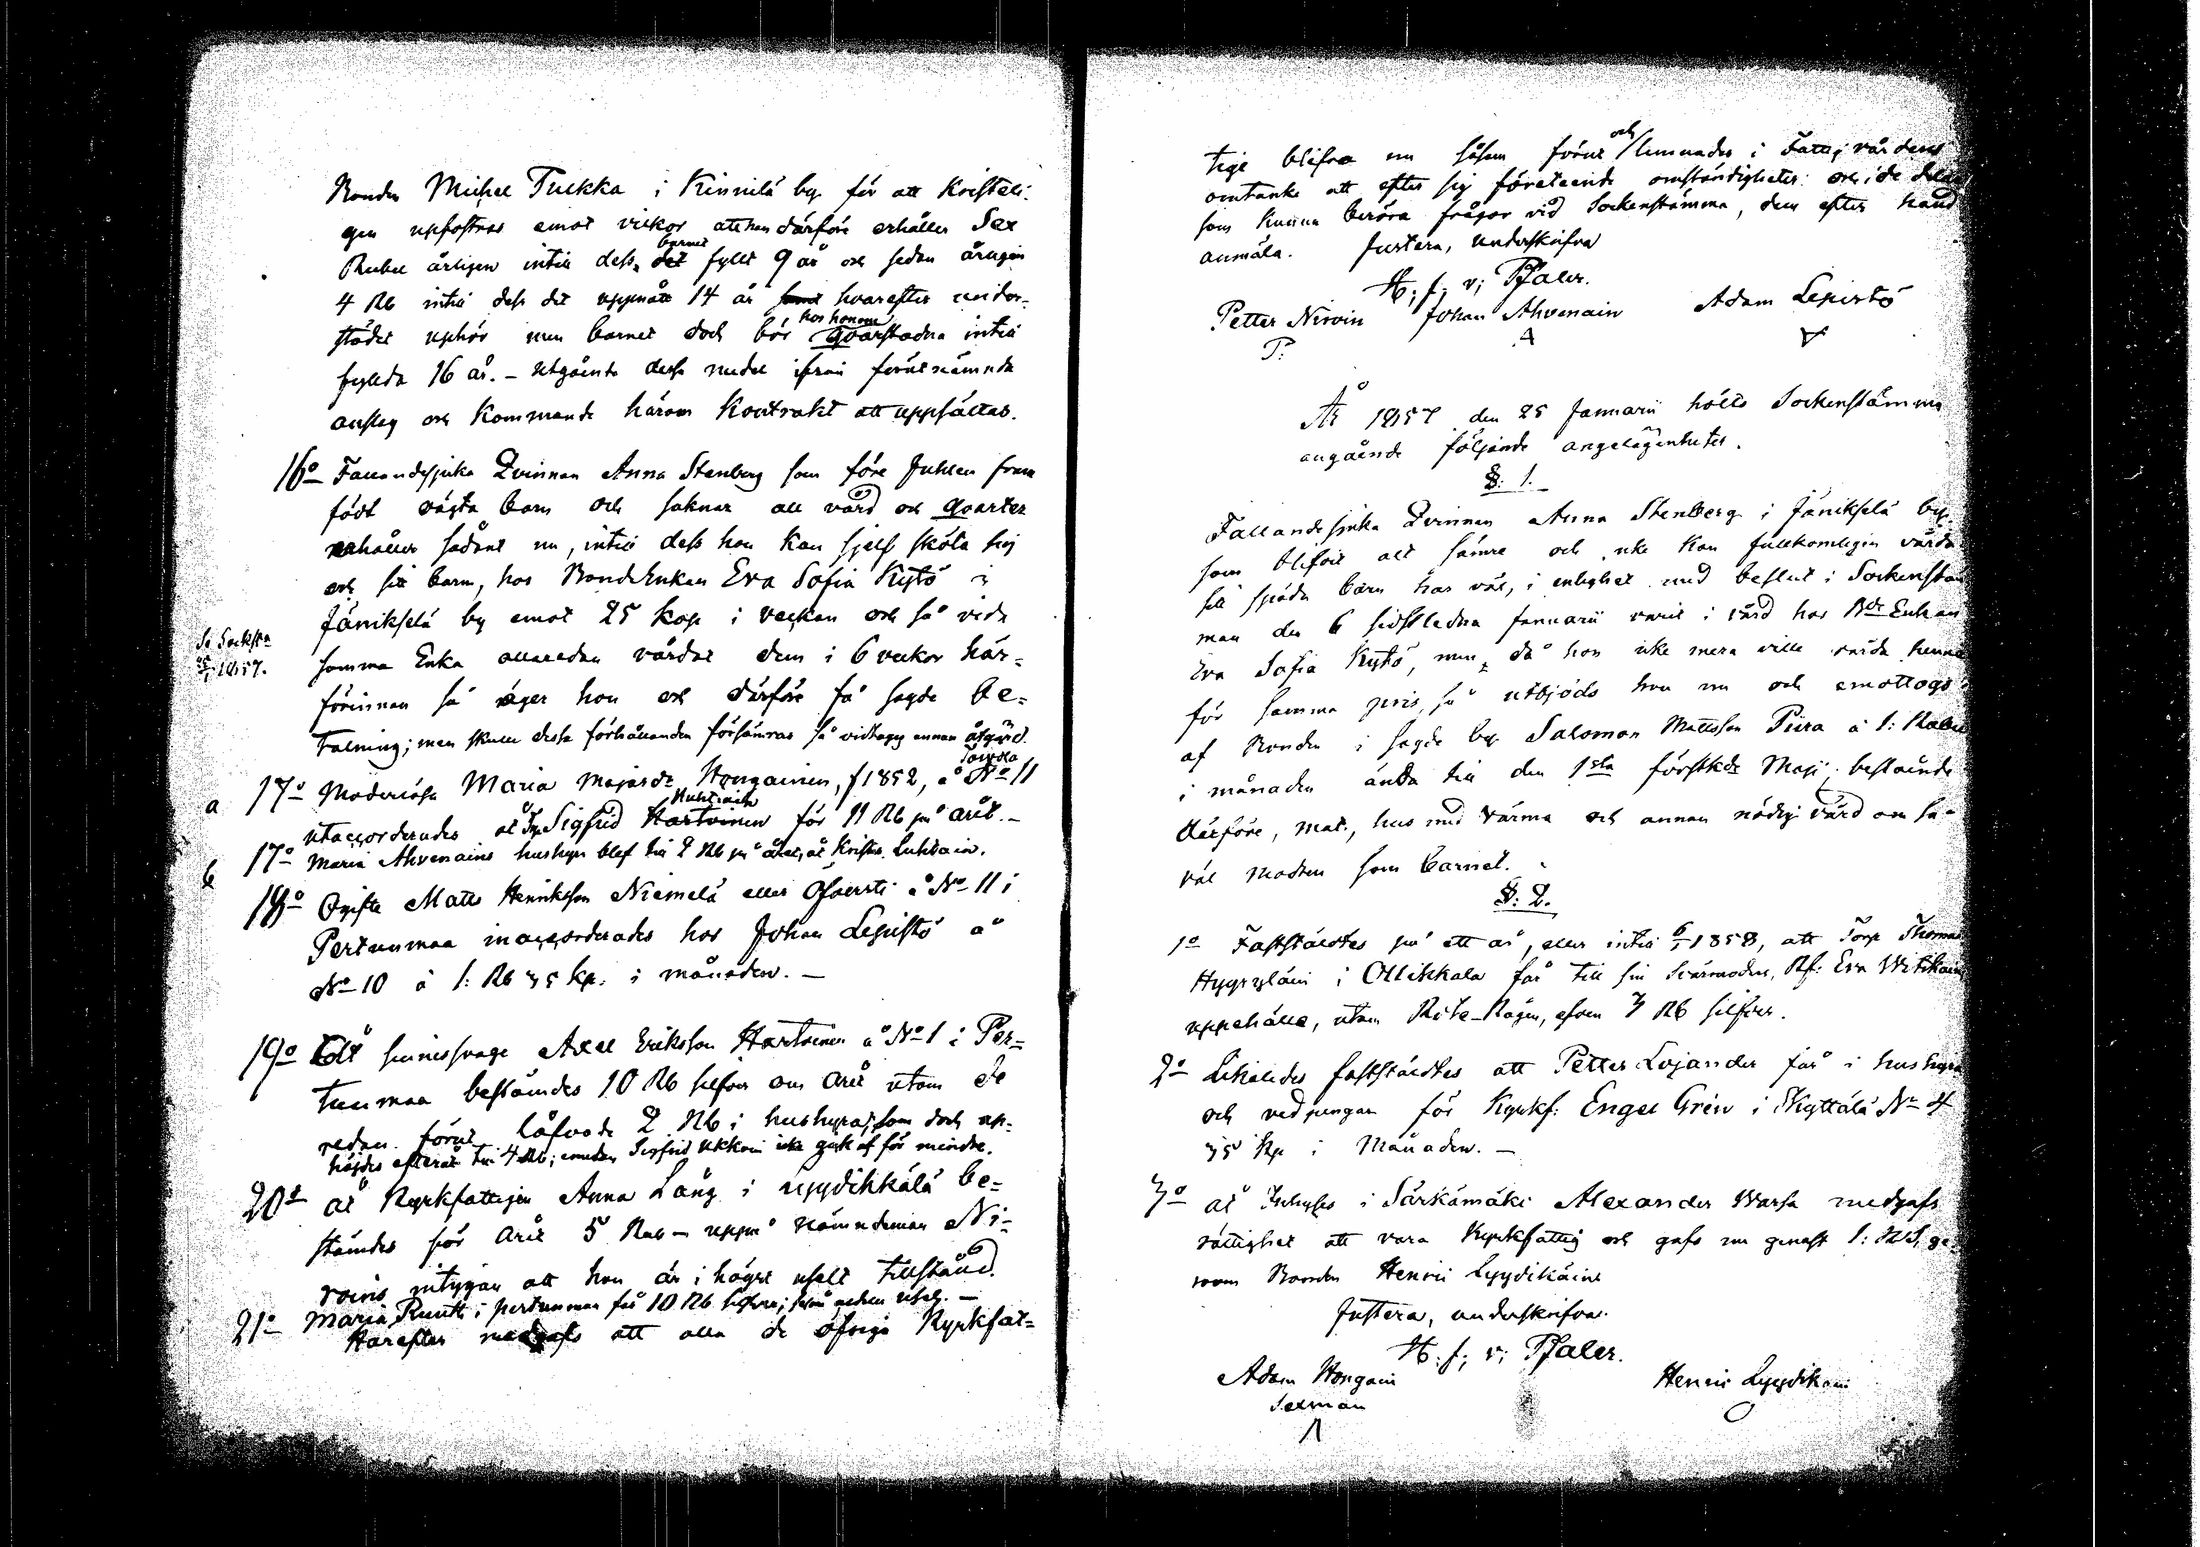 Bonden Michel Tuckka i Kinnilä by för att kristeli-
gen uppfostras emot vilkor att han därföre erhåller Sex
Rubel årligen intill dess barnet fyllt 9 år och sedan årligen
4 Rb intill dess det uppnått 14 år hvarefter under-
stödet uphör men barnet dock bör hos honom qvarstadna intill
fyllda 16 år. – Utgående dessa medel ifrån förutnämnda
anslag och kommande härom Kontrakt att uppsättas.
16o Fallandesjuka Qvinnan Anna Stenberg som före Julen fram
födt oägta barn och saknar all vård och qvarter
erhåller sådant nu, intill dess hon kan sjelf sköta sig
och sit barn, hos BondeEnkan Eva Sofia Kytö i
Jänikselä by emot 25 kop i veckan och så vida
Se Sockst:
1857.
samma Enka allaredan vårdat dem i 6 veckor här-
förinnan så äger hon och därföre få sagde be-
talning; men skulle dessa förhållanden försämras så vidtages annan åtgärd.
a 17o Moderlösa Maria Majasdr Hongainen, f 1852, å No 11
utackorderades åt Sigfrid Huhtiain för 11 Rb på året. –
b 17o Maria Ahvenains hushyra blef till 2 Rb på året, åt Krister Luhtain.
18o Ogifte Matts Henriksson Niemelä eller Ofversti å No 11 i
Pertunmaa inackorderades hos Johan Lepistö å
No 10 à 1: Rb 75 kp. i månaden. –
19o Åt sinnessvage Axel Eriksson Hartoinen å No 1 i Per-
tunmaa bestämdes 10 Rb silfver om året utom de
redan förut låfvade 2 Rb i hushyra; som dock up-
höjdes efteråt till 4 Rb; emedan Sigfrid Ukkoin icke gick af för mindre.
20o åt Kyrkfattigen Anna Lång i Lyydikkälä be-
stämdes för året 5 Rub – uppå Nämndeman Ni-
roins intygan att hon är i högst uselt tillstånd.
21o Maria Ruuth i pertunmaa får 10 Rb silfver; –
Härefter medgafs att alla de öfriga Kyrkfat-
tige blifva nu såsom förut och lemnades i Fattigvårdens
omtanke att efter sig företeende omständigheter och i de delar
som kunna beröra frågor vid Sockenstämma, dem efter hand
anmäla. Justera, underskrifva
H; f; v; Pfaler.
Petter Niroin Johan Ahvenain Adam Lepistö
År 1857 den 25 Januarii hölts Sockenstämma
angående följande angelägenheter.
§: 1.
Fallandesjuka Qvinnan Anna Stenberg i Jänikselä by
som blifvit allt sämre och icke kan fullkomligen vårda
sitt späda barn har väl, i enlighet med beslut i Sockenstäm
man den 6 sistledna Januarii varit i vård hos Bde Enkan
Eva Sofia Kytö, men, då hon icke mera ville vårda henne
för samma pris, så utbjöds hon nu och emottogs
af Bonden i sagde by Salomon Mattsson Piira à 1: Rubel
i månaden ända till den 1sta förstk:de Maji; bestående
därföre, mat, hus med värma och annan nödig vård om så-
väl modren som barnet.
§: 2.
1o Fastställdtes på ett år, eller intill 6/1 1858, att Torp Thomas
Hyyryläin i Ollikkala får till sin Svärmoders, Kf: Eva Witikain
uppehälle, utom Rote-Rågen, äfven 3 Rb silfver.
2o Likaledes fastställdtes att Petter Lojander får i hushyra
och vedpengar för Kyrkf: Engel Gren i Kyttälä No 4
75 Kp i Månaden. –
3o åt Inhyses i Särkämäki Alexander Warsa medgafs
rättighet att vara Kyrkfattig och gafs nu genast 1: Rb S. ge-
nom Bonden Henric Lyydikäin
Justera, underskrifva.
H. f; v; Pfaler.
Adam Hongain Henric Lyydikäin
Sexman